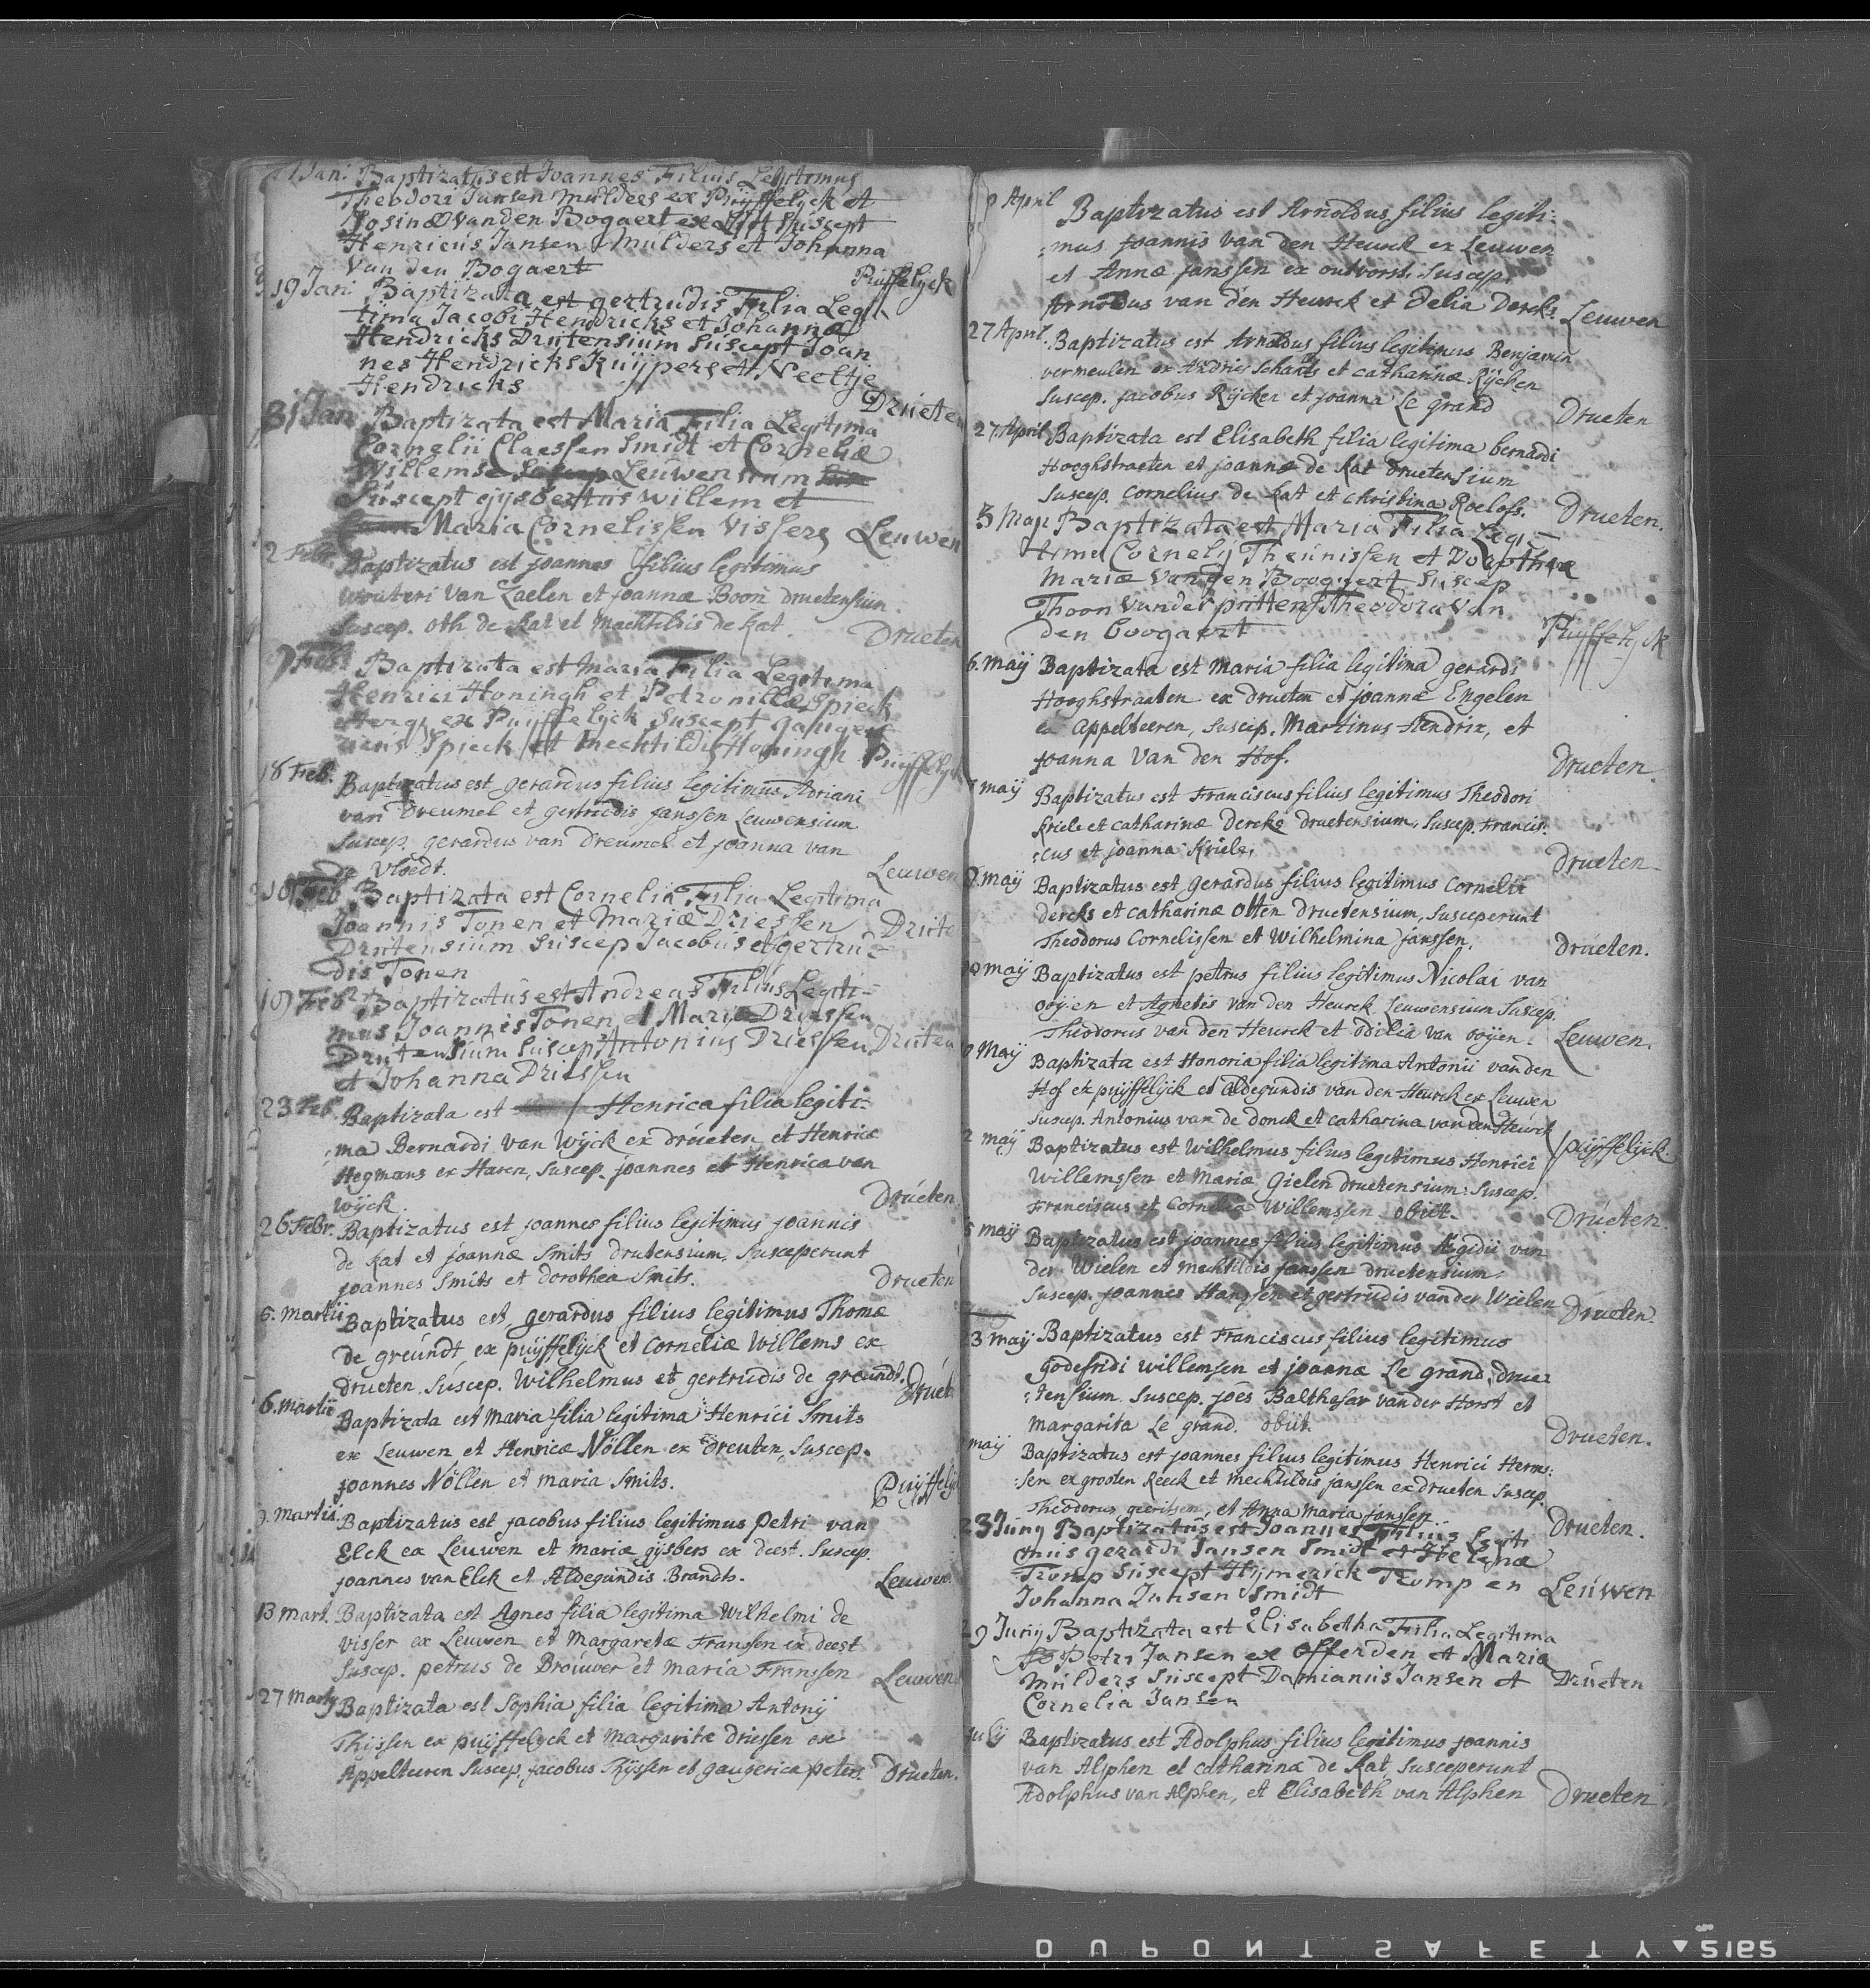 Jani Baptizatus est Joannes Filius Legitimus
Theodori Jansen Mulders ex Puyffelyck et
Josinæ van den Bogaert ex suscept
Henricus Jansen Mulders et Johanna
van den Bogaert Puffelyck
19 Jani Baptizata est gertrudis Filia Legi
tima Jacobi Hendricks et Johannæ
Hendricks Drutensium suscept Joan
nes Hendricks Kuijpers et Neeltje
Hendricks Drueten
31 Jan Baptizata est Maria Filia Legitima
Cornelii Claessen Smidt et Corneliæ
Willemse Leuwensium
Suscept gijsbertus willem et
Maria Cornelissen Vissers Leuwen
2 Feb. Baptizatus est joannes filius legitimus
wouteri van Zaelen et joannæ Boon druetensium
suscep. oth de kat et Machtildis de kat. Drueten
7 Feb Baptizata est Maria Filia Legitima
Henrici Honingh et Petronillæ Spieck
ex Puyffelyck Suscept gauge
ricus Spieck et Mechtildis Honingh Puijffelyck
18 Feb. Baptizatus est gerardus filius legitimus Adriani
van Dreumel et gertrudis janssen Leuwensium
Suscep. gerardus van dreumel et joanna van
de Vloedt. Leuwen
19 Feb Baptizata est Cornelia Filia Legitima
Joannis Tonen et Mariæ Driessen Drute
Drutensium Suscep Jacobus et gertru=
dis Tonen
19 Feb Baptizatus est Andreas Filius Legiti=
mus Joannis Tonen et Mariæ Dryessen
Drutensium Suscep Antonius Driessen Druten
et Johanna Driessen
23 Feb. Baptizata est Henrica filia legiti:
:ma Bernardi van Wijck ex drueten et Henricæ
Hegmans ex Haren, Suscep. joannes et Henrica van
Wijck. Drueten
26 Febr. Baptizatus est joannes filius legitimus joannis
de kat et joannæ Smits drutensium, Susceperunt
joannes Smits et dorothea Smits. Drueten
6. Martii Baptizatus est gerardus filius legitimus Thomæ
de greundt ex puijffelijck et Corneliæ Willems ex
drueten. Suscep. Wilhelmus et gertrudis de greundt. Druet
6. Martii Baptizata est Maria filia legitima Henrici Smits
ex Leuwen et Henricæ Nöllen ex Dreuten, Suscep.
joannes Nöllen et maria Smits. Puijffelij
9. Martii. Baptizatus est jacobus filius legitimus Petri van
Elck ex Leuwen et Mariæ gijsbers ex deest. Suscep.
joannes van Elck et Aldegundis Brandts. Leuwen
13 mart. Baptizata est Agnes filia legitima Wilhelmi de
visser ex Leuwen et Margaretæ Franssen ex deest
Suscep. petrus de Brouwer et maria Franssen Leuwen
27 Martij Baptizata est Sophia filia legitima Antonij
Thijssen ex puijffelyck et Margaritæ driessen ex
Appelteeren Suscep. jacobus Thijssen et gaugerica peters. Drueten.
April Baptizatus est Arnoldus filius legiti:
:mus joannis van den Heurck ex Leuwen
et Annæ janssen ex outvorst. Suscep.
Arnoldus van den Heurck et Delia Dercks Leuwen
27 April. Baptizatus est Arnoldus filius legitimus Benjamin
vermeulen ex Andries et catharinæ Rijcken
Suscep. jacobus Rijcken et joanna Le grand Drueten
27. April Baptizata est Elisabeth filia legitima bernardi
Hooghstraeten et joannæ de Kat druetensium
Suscep. Cornelius de kat et christina Roelofs. Drueten.
3 Maji Baptizata est Maria Filia Legi=
tima Cornelij Theunissen et Dorotheæ
Mariæ van den Boogaert Suscep
Thoon Vander putten Theodora Van
den boogaert Puyffelyck
6. Maij Baptizata est Maria filia legitima gerardi
Hooghstraeten ex drueten et joannæ Engelen
ex Appelteeren, Suscep. Martinus Hendrix, et
joanna Van den Hof. Drueten.
7 maij Baptizatus est Franciscus filius legitimus Theodori
kriele et catharinæ dercks druetensium, Suscep. Francis:
:cus et joanna Kriele, drueten
9. maij Baptizatus est Gerardus filius legitimus Cornelii
dercks et catharinæ otten druetensium, Susceperunt
Theodorus Cornelissen et Wilhelmina janssen. drueten.
10 maij Baptizatus est petrus filius legitimus Nicolai van
ooyen et Agnetis van den Heurck Leuwensium Suscep.
Theodorus van den Heurck et odilia van ooijen. Leuwen.
Maij Baptizata est Honoria filia legitima Antonii van den
Hof ex puijffelijck et Aldegundis van den Heurck ex Leuwen
Suscep. Antonius van de donck et catharina van den Heurck puijffelijck.
2 maij Baptizatus est Wilhelmus filius legitimus Henrici
Willemssen et Mariæ Gielen druetensium. Suscep.
Franciscus et Cornelia Willemssen obiit. Drueten.
5 maij Baptizatus est joannes filius legitimus Ægidii van
der Wielen et Mechtildis janssen druetensium.
Suscep. joannes Hanssen et gertrudis vander Wielen Drueten.
3 maij Baptizatus est Franciscus filius legitimus
godefridi willemsen et joannæ Le grand, drue=
:tensium. Suscep. joēs Balthasar vander Horst et
margarita Le grand. obiit. Drueten.
maij Baptizatus est joannes filius legitimus Henrici Herms:
:sen ex grooten Reeck et mechtildis janssen ex drueten Suscep.
Theodorus gerritsen, et Anna Maria janssen Drueten.
23 Junij Baptizatus est Joannes Filius Legiti
mus gerardi Jansen Smidt et Helenæ
Tromp Suscept Hijmerick Tromp en Leuwen
Johanna Jansen Smidt
29 Junij Baptizata est Elisabetha Filia Legitima
Petri Jansen ex Offerden et Mariæ
Mulders Suscept Damianus Jansen et Drueten
Cornelia Jansen
july Baptizatus est Adolphus filius legitimus joannis
van Alphen et catharinæ de kat, Susceperunt
Adolphus van Alphen, et Elisabeth van Alphen Drueten
DUPONT SAFETY